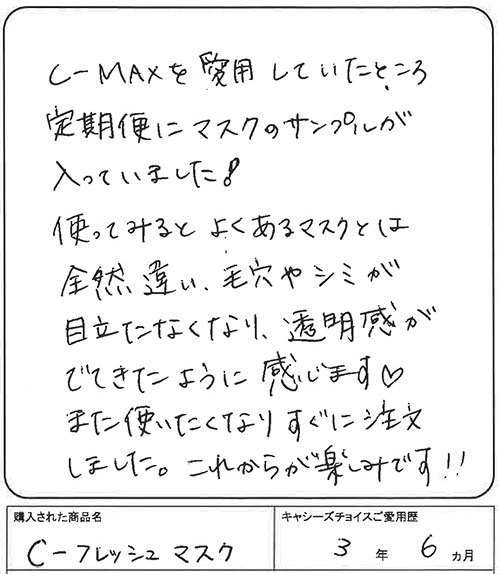 C-MAXを愛用していたところ
定期便にマスクのサンプルが
入っていました!
使ってみるとよくあるマスクとは
全然違い、毛穴やシミが
目立たなくなり、透明感が
でてきたように感じます♡
また使いたくなりすぐに注文
しました。これからが楽しみです!!
購入された商品名
キャシーズチョイスご愛用歴
C-フレッシュマスク
3年 6ヵ月